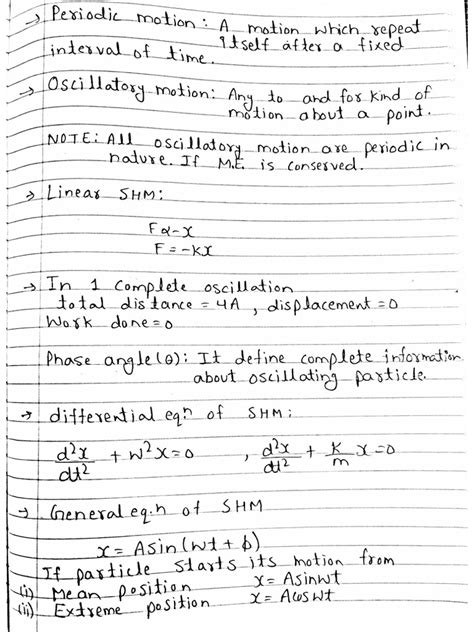 → Periodic motion: A motion which repeat
itself after a fixed
interval of time.
→ Oscillatory motion: Any to and for kind of
motion about a point.
NOTE: All oscillatory motion are periodic in
nature. If M.E. is conserved.
→ Linear SHM:
F∝-x
F=-Kx
→ In 1 complete oscillation
total distance = 4A, displacement = 0
Work done = 0
Phase angle(θ): It define complete information
about oscillating particle.
→ differential eqn of SHM:
d²x/dt² + w²x=0 , d²x/dt² + K/m x=0
→ General eq.n of SHM
x= Asin(wt + ϕ)
If particle starts its motion from
(i) Mean position x= Asinwt
(ii) Extreme position x= Acoswt